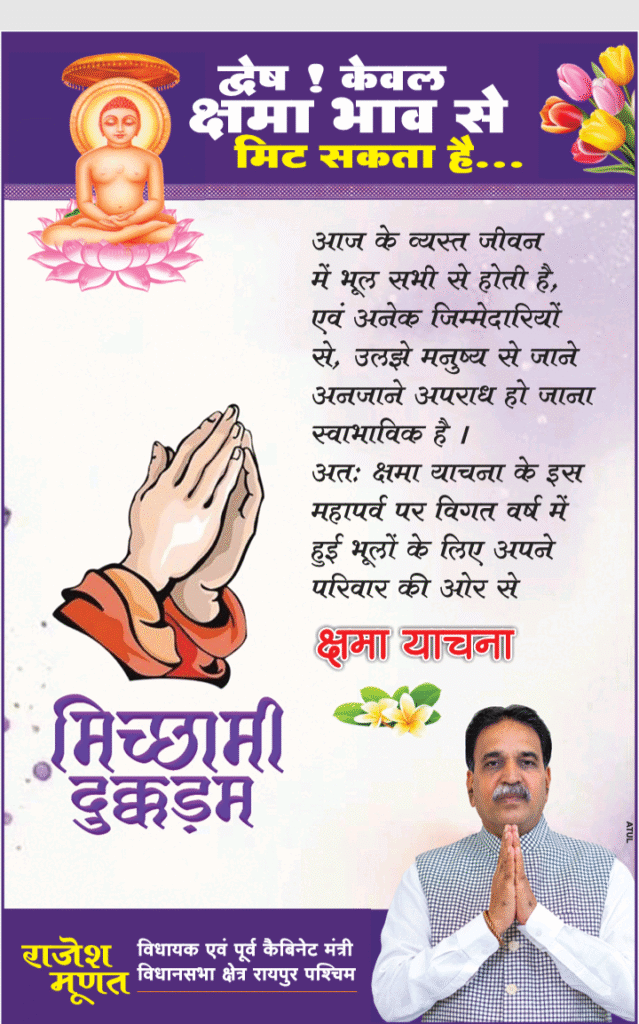 द्वेष ! केवल
क्षमा भाव से
मिट सकता है...
आज के व्यस्त जीवन
में भूल सभी से होती है,
एवं अनेक जिम्मेदारियों
से, उलझे मनुष्य से जाने
अनजाने अपराध हो जाना
स्वाभाविक है ।
अतः क्षमा याचना के इस
महापर्व पर विगत वर्ष में
हुई भूलों के लिए अपने
परिवार की ओर से
क्षमा याचना
मिच्छामी
दुक्कड़म
ATUL
राजेश
मूणत
विधायक एवं पूर्व कैबिनेट मंत्री
विधानसभा क्षेत्र रायपुर पश्चिम